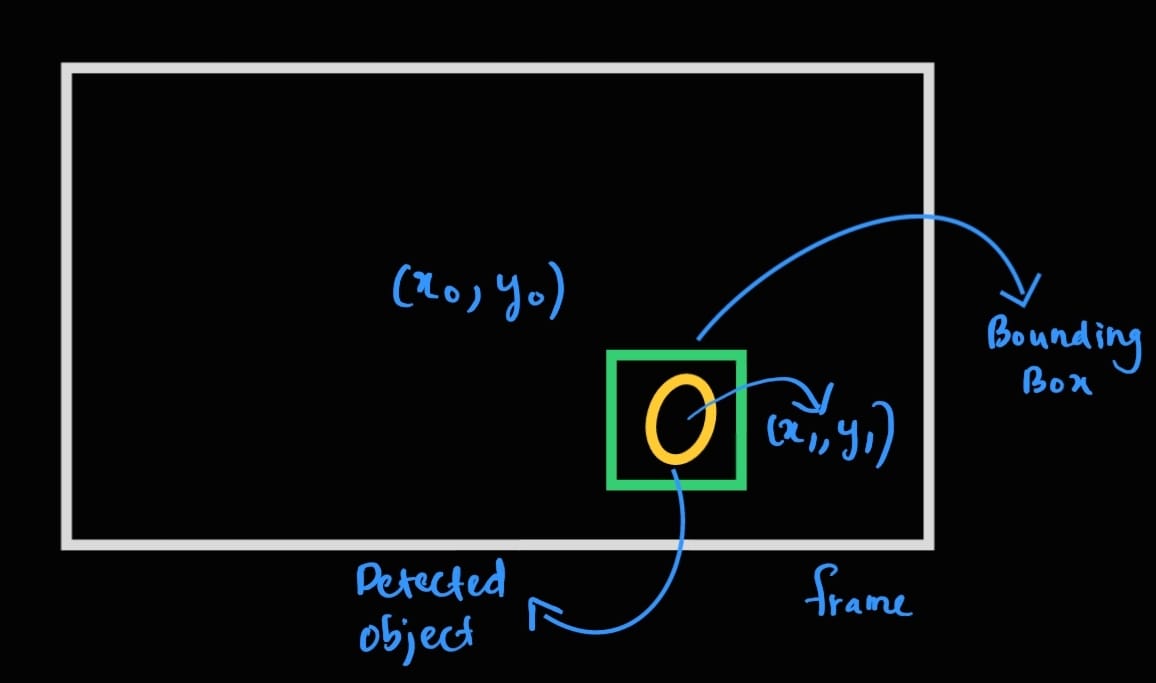 (x₀, y₀)
Bounding
Box
(x₁, y₁)
Detected
object
frame